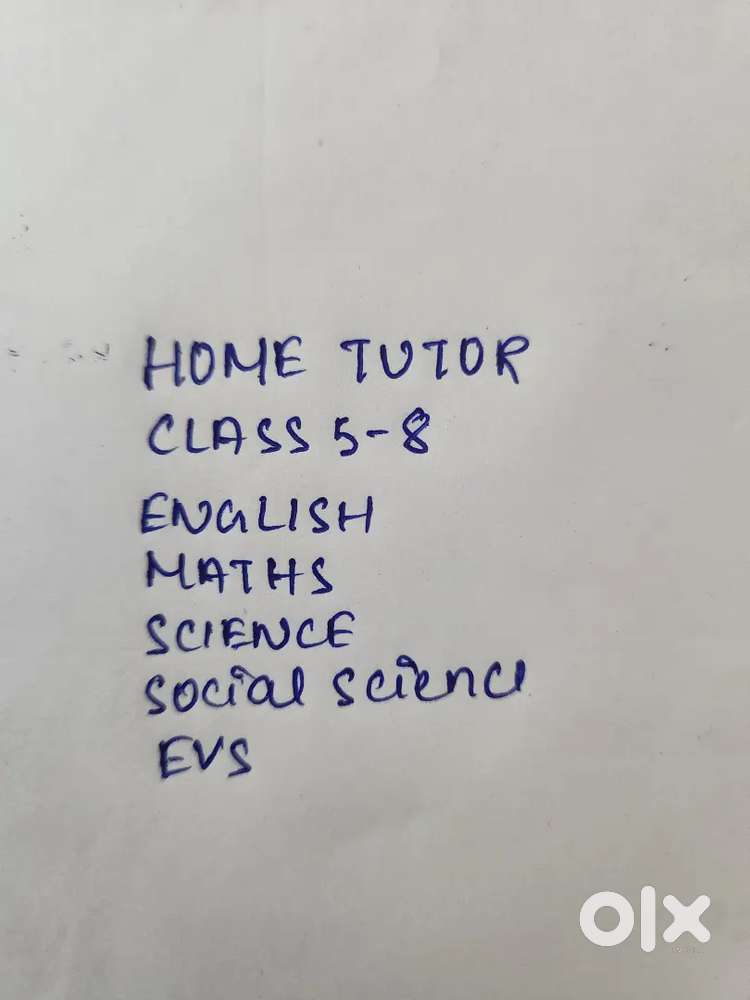 HOME TUTOR
CLASS 5-8
ENGLISH
MATHS
SCIENCE
Social Science
EVS
olx